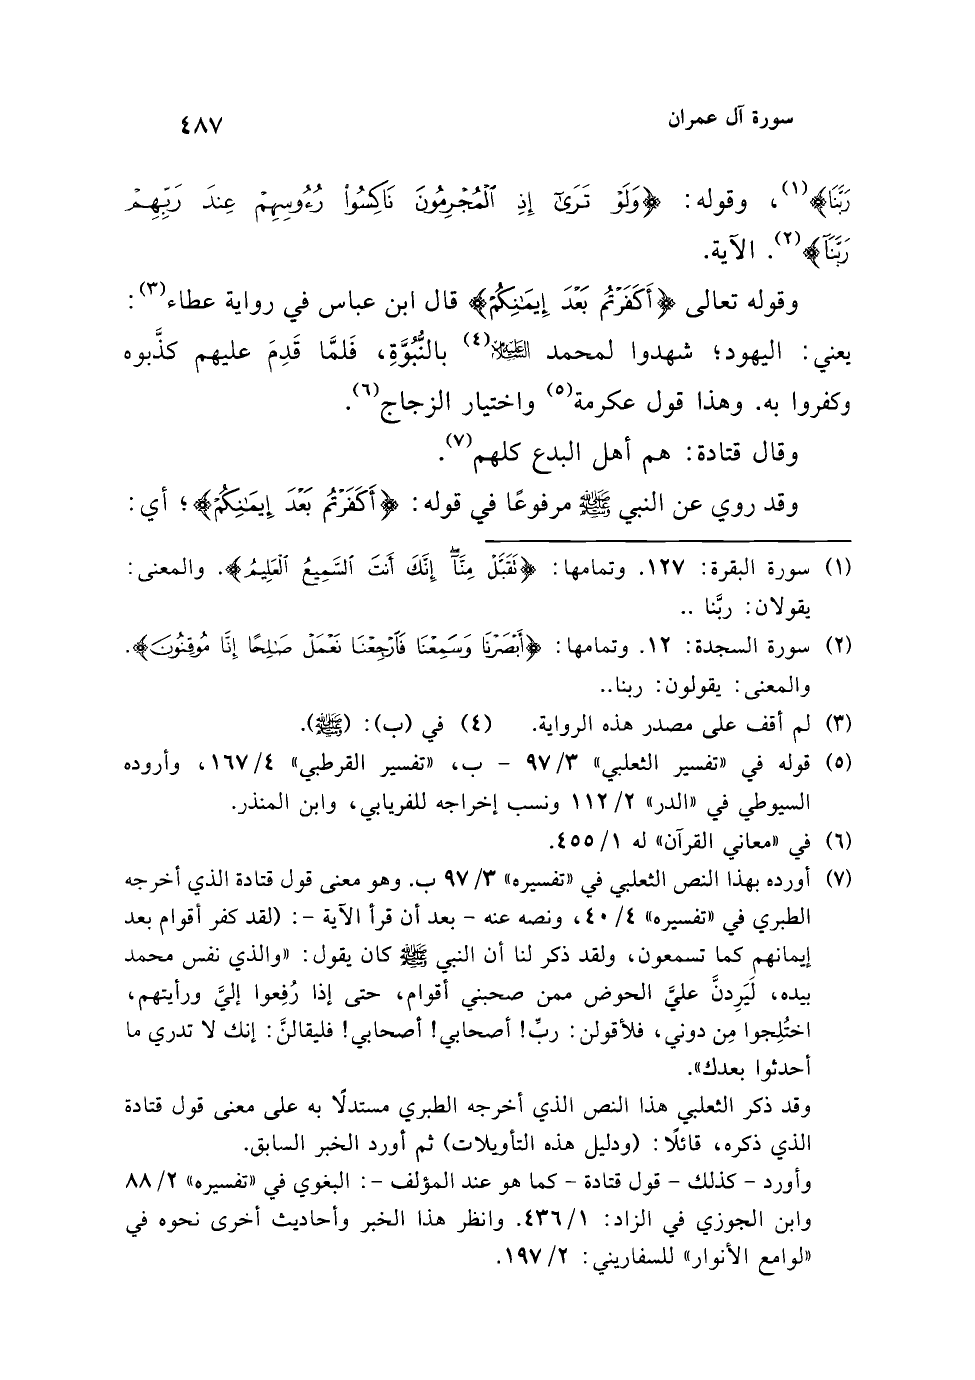 سورة آل عمران ٤٨٧
رَبَّنَا﴾(١)، وقوله: ﴿وَلَوْ تَرَىٰٓ إِذِ ٱلْمُجْرِمُونَ نَاكِسُوا۟ رُءُوسِهِمْ عِندَ رَبِّهِمْ
رَبَّنَآ﴾(٢). الآية.
وقوله تعالى ﴿أَكَفَرْتُم بَعْدَ إِيمَٰنِكُمْ﴾ قال ابن عباس في رواية عطاء(٣):
يعني: اليهود؛ شهدوا لمحمد عليه السلام(٤) بالنُّبُوَّةِ، فَلمَّا قَدِمَ عليهم كذَّبوه
وكفروا به. وهذا قول عكرمة(٥) واختيار الزجاج(٦).
وقال قتادة: هم أهل البدع كلهم(٧).
وقد روي عن النبي ﷺ مرفوعًا في قوله: ﴿أَكَفَرْتُم بَعْدَ إِيمَٰنِكُمْ﴾؛ أي:
(١) سورة البقرة: ١٢٧. وتمامها: ﴿تَقَبَّلْ مِنَّآ ۖ إِنَّكَ أَنتَ ٱلسَّمِيعُ ٱلْعَلِيمُ﴾. والمعنى:
يقولان: ربَّنا ..
(٢) سورة السجدة: ١٢. وتمامها: ﴿أَبْصَرْنَا وَسَمِعْنَا فَٱرْجِعْنَا نَعْمَلْ صَٰلِحًا إِنَّا مُوقِنُونَ﴾.
والمعنى: يقولون: ربنا..
(٣) لم أقف على مصدر هذه الرواية. (٤) في (ب): (ﷺ).
(٥) قوله في «تفسير الثعلبي» ٣/ ٩٧ - ب، «تفسير القرطبي» ٤/ ١٦٧، وأروده
السيوطي في «الدر» ٢/ ١١٢ ونسب إخراجه للفريابي، وابن المنذر.
(٦) في «معاني القرآن» له ١/ ٤٥٥.
(٧) أورده بهذا النص الثعلبي في «تفسيره» ٣/ ٩٧ ب. وهو معنى قول قتادة الذي أخرجه
الطبري في «تفسيره» ٤/ ٤٠، ونصه عنه - بعد أن قرأ الآية -: (لقد كفر أقوام بعد
إيمانهم كما تسمعون، ولقد ذكر لنا أن النبي ﷺ كان يقول: «والذي نفس محمد
بيده، لَيَرِدنَّ عليَّ الحوض ممن صحبني أقوام، حتى إذا رُفِعوا إليَّ ورأيتهم،
اختُلِجوا مِن دوني، فلأقولن: ربِّ! أصحابي! أصحابي! فليقالنَّ: إنك لا تدري ما
أحدثوا بعدك».
وقد ذكر الثعلبي هذا النص الذي أخرجه الطبري مستدلًا به على معنى قول قتادة
الذي ذكره، قائلًا: (ودليل هذه التأويلات) ثم أورد الخبر السابق.
وأورد - كذلك - قول قتادة - كما هو عند المؤلف -: البغوي في «تفسيره» ٢/ ٨٨
وابن الجوزي في الزاد: ١/ ٤٣٦. وانظر هذا الخبر وأحاديث أخرى نحوه في
«لوامع الأنوار» للسفاريني: ٢/ ١٩٧.